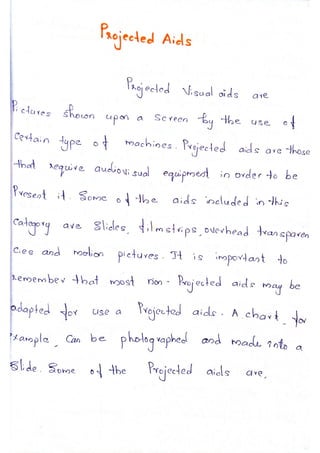 Projected Aids
Projected Visual aids are
Pictures shown upon a Screen by the use of
Certain type of machines. Projected aids are those
that require audiovisual equipment in order to be
Present it. Some of the aids included in this
Category are Slides, filmstrips, overhead transparen
cies and motion pictures. It is important to
remember that most non-Projected aids may be
adapted for use a Projected aids. A chart, for
example, Can be photographed and made into a
Slide. Some of the Projected aids are,